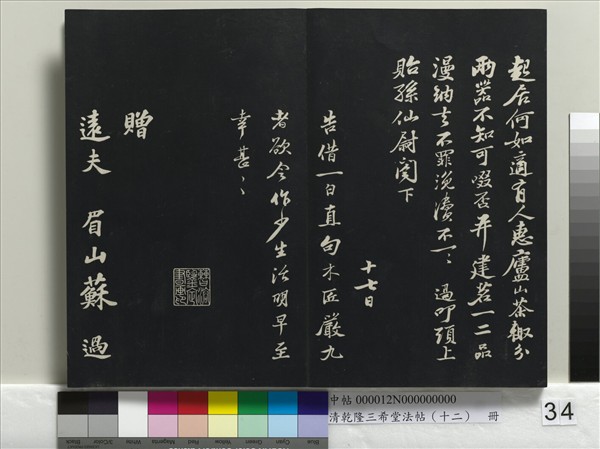 起居何如適有人惠廬山茶輒分
兩器不知可啜否并建茗一二品
漫納去不罪浼瀆不一一 過叩頭上
貽孫仙尉閣下
十七日
告借一白直句木匠嚴九
者欲令作少生活明早至
幸甚甚
贈
遠夫 眉山蘇過
中帖 000012N000000000
清乾隆三希堂法帖(十二) 冊
34
Blue
Cyan
Green
Yellow
Red
Magenta
White
3/Color
Black